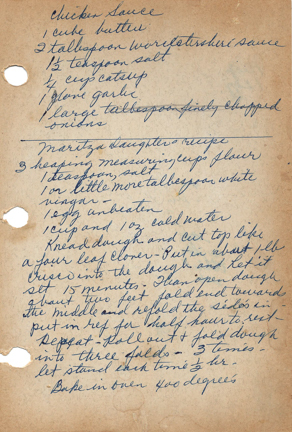 Chicken Sauce
1 cube butter
2 tablespoon worcestersheri sauce
1 1/2 teaspoon salt
1/4 cup catsup
1 glove garlic
1 large tablespoon finely chopped
onions
Maritza daughters recipe
3 heaping measuring cups flour
1 teaspoon, salt
1 or little more tablespoon white
vinegar -
1 egg unbeaten
1 cup and 1 oz cold water
Knead dough and cut top like
a four leaf clover - Put in about 1-lb
Crisco into the dough and let it
set 15 minutes - Than open dough
about two feet fold end towards
the middle and refold the sides in -
put in ref for half hour to rest -
Repeat - Roll out & fold dough
into three folds - 3 times -
let stand each time 1/2 hr.
Bake in over 400 degrees